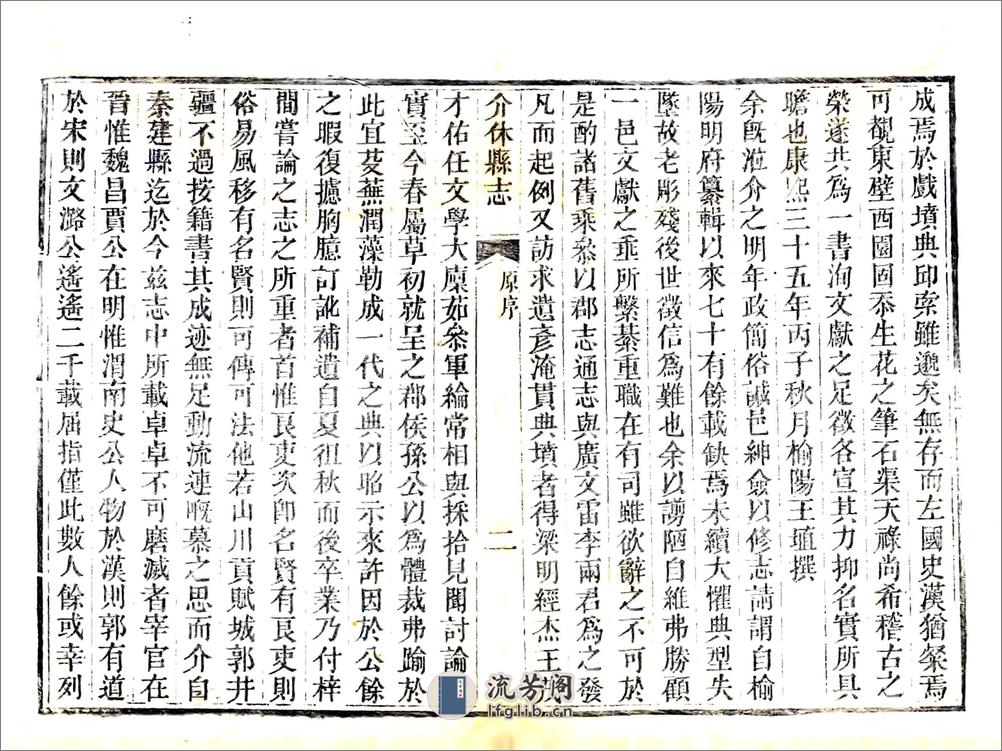 成焉於戲墳典邱索雖邈矣無存而左國史漢猶粲焉
可觀東壁西園國忝生花之筆石渠天祿尚希稽古之
榮遂共為一書洵文獻之足徵各宣其力抑名實所具
瞻也康熙三十五年丙子秋月榆陽王埴撰
余旣涖介之明年政簡俗誠邑紳僉以修志請謂自榆
陽明府纂輯以來七十有餘載缺焉未續大懼典型失
墜故老彫殘後世徵信爲難也余以謭陋自維弗勝顧
一邑文獻之乖所繫綦重職在有司雖欲辭之不可於
是酌諸舊乘叅以郡志通志與廣文雷李兩君爲之發
凡而起例又訪求遺彥淹貫典墳者得梁明經杰王
介休縣志
原序
二
才佑任文學大廩茹叅軍綸常相與採拾見聞討論
實至今春屬草初就呈之郡侯孫公以為體裁弗踰於
此宜芟蕪潤藻勒成一代之典以昭示來許因於公餘
之暇復攄胸臆訂訛補遺自夏徂秋而後卒業乃付梓
間嘗論之志之所重者首惟良吏次卽名賢有良吏則
俗易風移有名賢則可傳可法他若山川貢賦城郭井
疆不過按籍書其成迹無足動流連嘅慕之思而介自
秦建縣迄於今茲志中所載卓卓不可磨滅者宰官在
晉惟魏昌賈公在明惟渭南史公人物於漢則郭有道
於宋則文潞公遙遙二千載屈指僅此數人餘或幸列
流芳閣
lfglib.cn